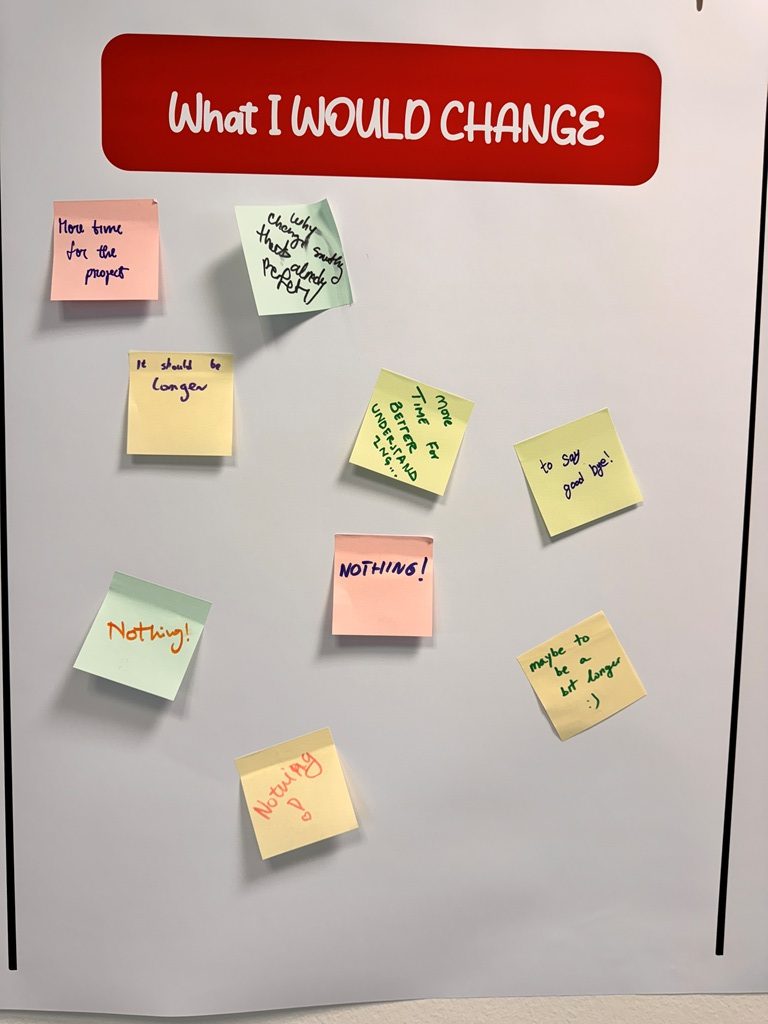 What I WOULD CHANGE
More time
for the
project
Why
change smthg
thats already
Perfect
It should be
Longer
MORE
TIME FOR
BETTER
UNDERSTAND
ING...
to say
good bye!
NOTHING!
Nothing!
maybe to
be a
bit longer
:)
Nothing
!